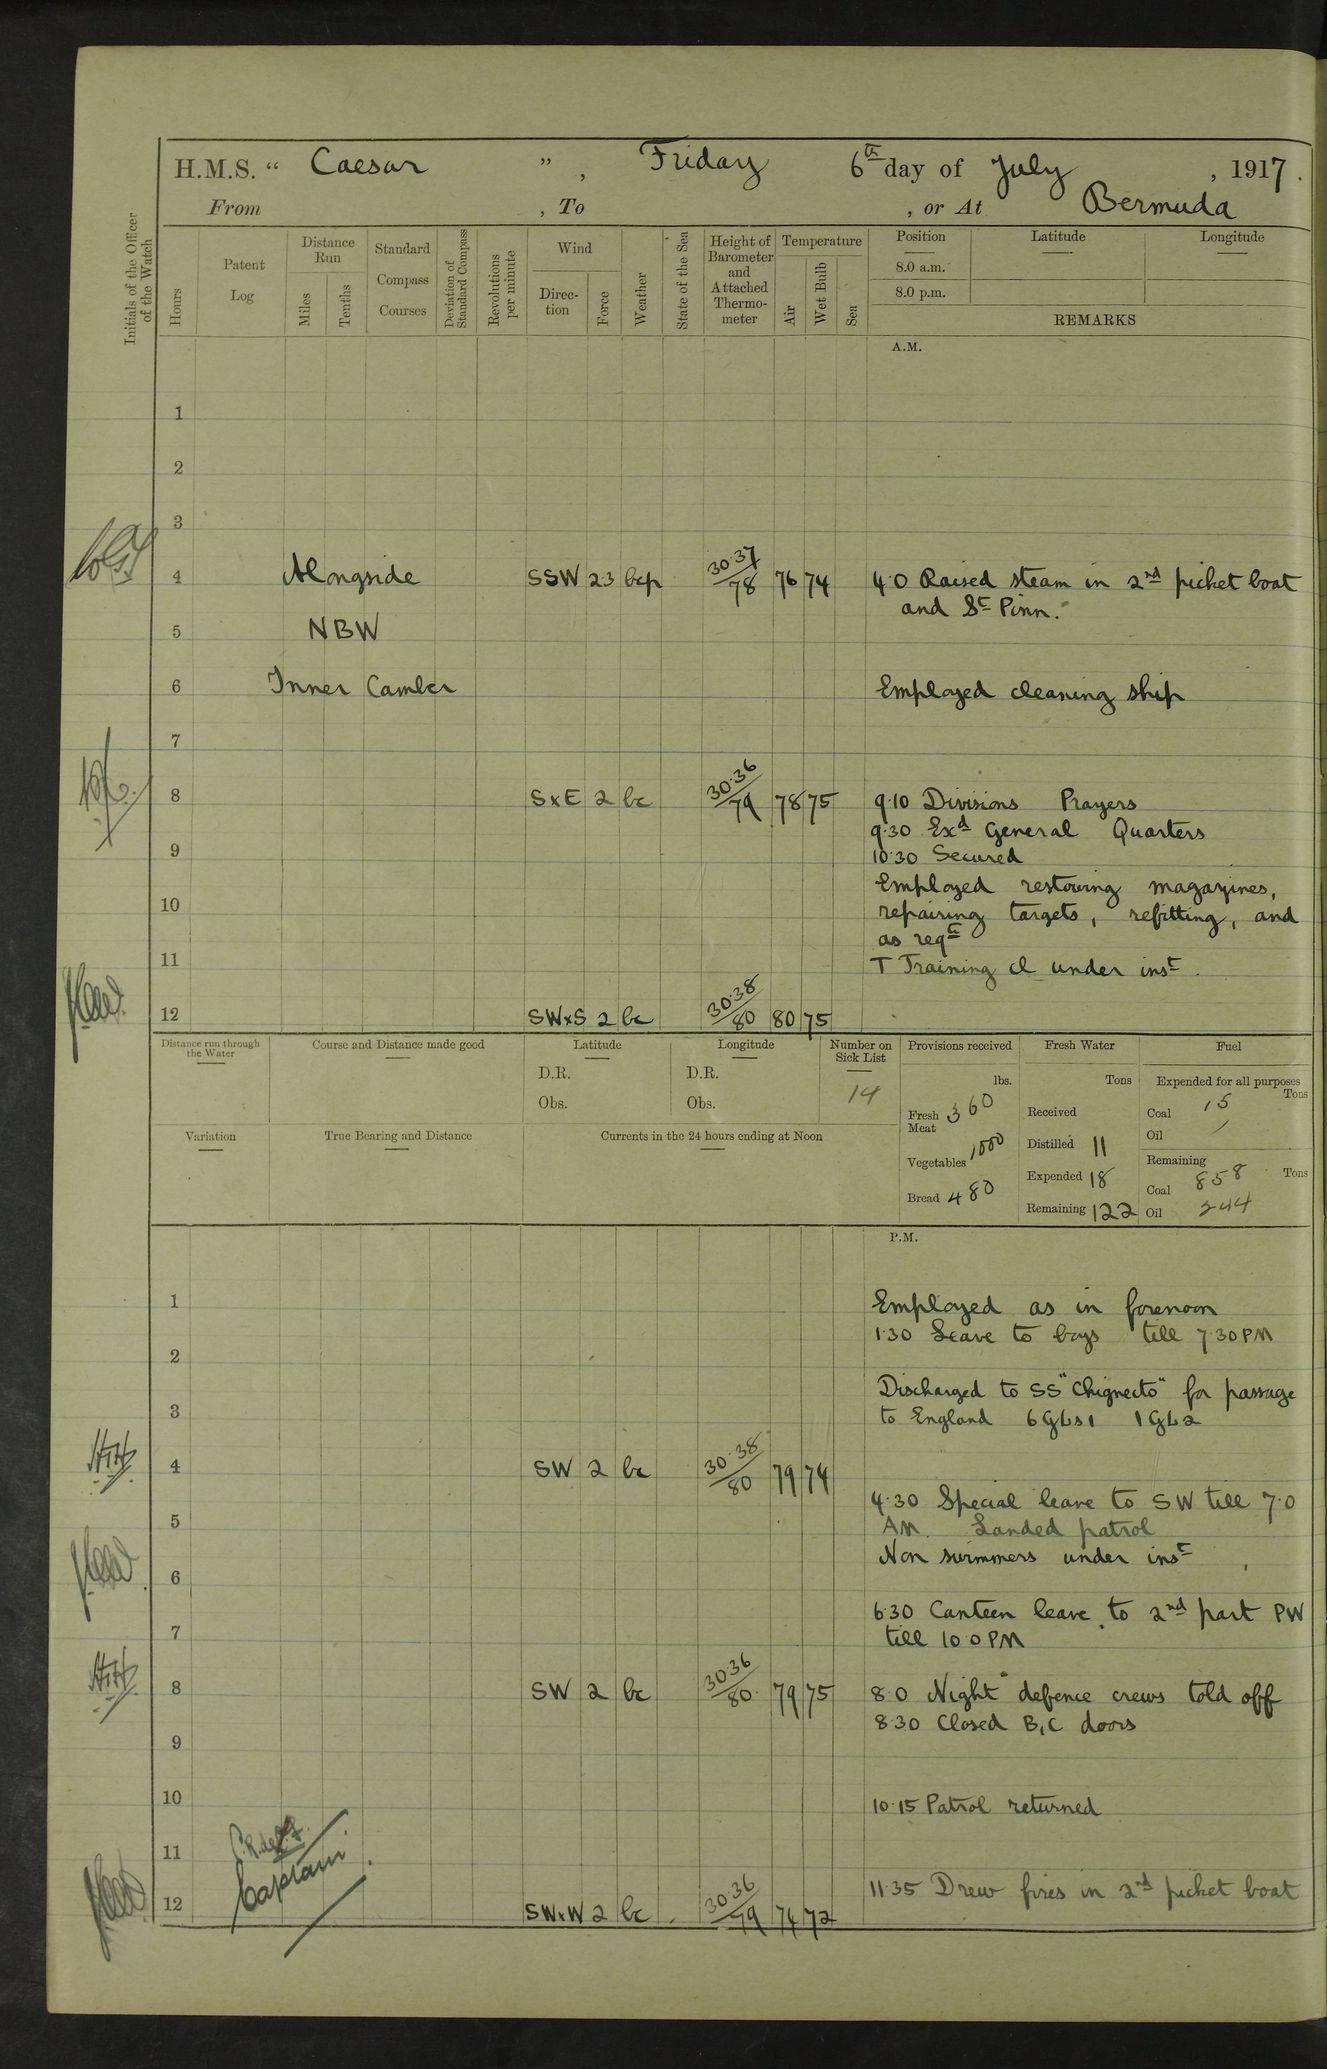 H.M.S. “ Caesar ” , Friday 6th day of July , 1917.
From , To , or At Bermuda
Initials of the Officer of the Watch
Hours
Patent Log
Distance Run
Miles
Tenths
Standard Compass Courses
Deviation of Standard Compass
Revolutions per minute
Wind
Direc- tion
Force
Weather
State of the Sea
Height of Barometer and Attached Thermo- meter
Temperature
Air
Wet Bulb
Sea
Position
Latitude
Longitude
8.0 a.m.
8.0 p.m.
REMARKS
A.M.
1
2
3
4 Alongside SSW 23 bcp 30·37/78 76 74 4·0 Raised steam in 2nd picket boat
and St Pinn.
5 NBW
6 Inner Camber Employed cleaning ship
7
8 SxE 2 bc 30·36/79 78 75 9·10 Divisions Prayers
9·30 Exd General Quarters
9 10·30 Secured
Employed restowing magazines,
10 repairing targets, refitting, and
as reqte
11 T Training cl under inst.
12 SWxS 2 bc 30·38/80 80 75
Distance run through the Water
Course and Distance made good
Latitude
D.R.
Obs.
Longitude
D.R.
Obs.
Number on Sick List
14
Provisions received
lbs.
Fresh Meat 360
Vegetables 1000
Bread 480
Fresh Water
Tons
Received
Distilled 11
Expended 18
Remaining 122
Fuel
Expended for all purposes
Tons
Coal 15
Oil
Remaining
Tons
Coal 858
Oil 244
Variation
True Bearing and Distance
Currents in the 24 hours ending at Noon
P.M.
1 Employed as in forenoon
1·30 Leave to boys till 7·30 PM
2
Discharged to SS "Chignecto" for passage
3 to England 6 GLs1 1 GL2
4 SW 2 bc 30·38/80 79 74
4·30 Special leave to SW till 7·0
5 AM. Landed patrol
Non swimmers under inst
6
6·30 Canteen leave to 2nd part PW
7 till 10·0 PM
8 SW 2 bc 30·36/80 79 75 8·0 Night defence crews told off
8·30 Closed B, C doors
9
10 10·15 Patrol returned
11
Captain
12 SWxW 2 bc 30·36/79 74 72 11·35 Drew fires in 2nd picket boat